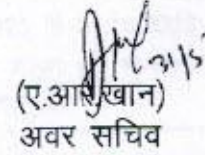 31/5
(ए.आर.खान)
अवर सचिव